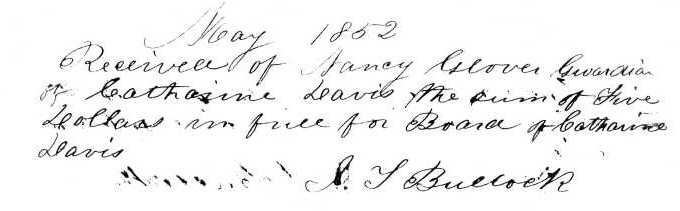 May 1852
Received of Nancy Glover Guardian
of Catharine Davis the sum of Five
Dollars in full for Board of Catharine
Davis
J. S Bullock